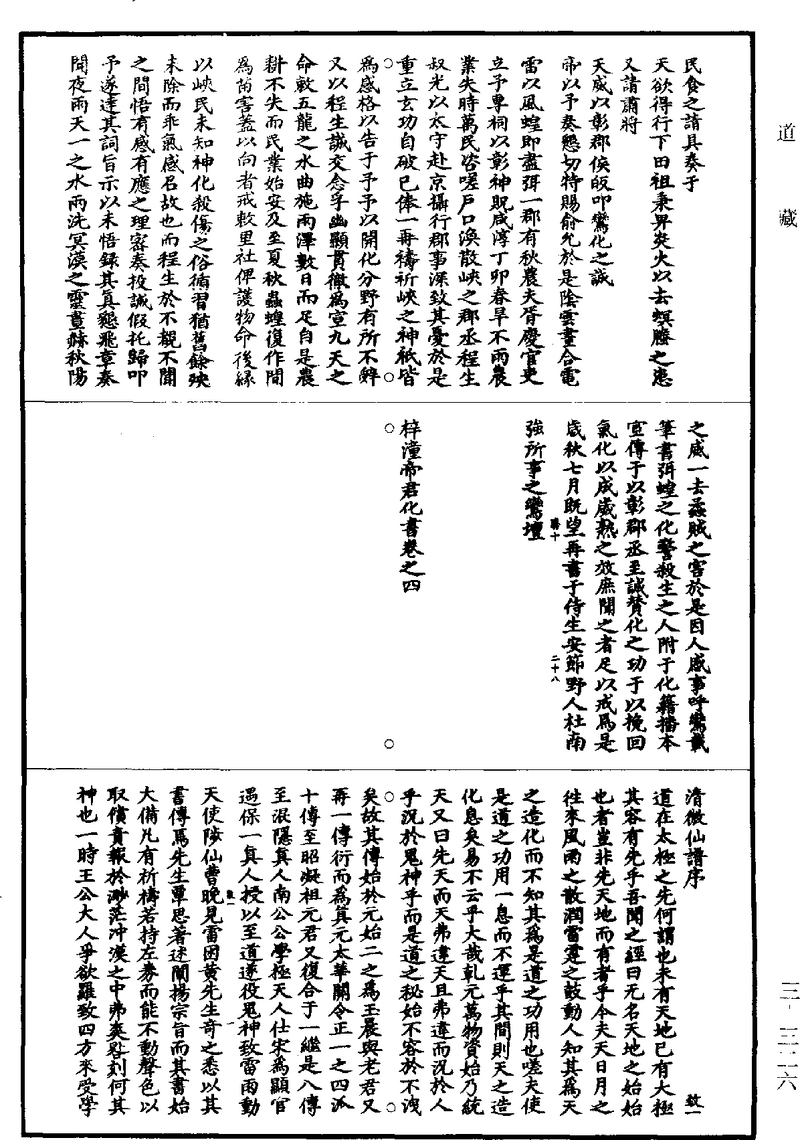 道藏
三‧三二六
民食之請具奏子
天欲得行下田祖秉畀炎火以去螟螣之患
又請肅將
天威以彰郡侯皈叩鸞化之誠
帝以予奏懇切特賜俞允於是陰雲晝合電
雷以風蝗即盡弭一郡有秋農夫胥慶官吏
立予專祠以彰神貺咸淳丁卯春旱不雨農
業失時萬民咨嗟戶口渙散峽之郡丞程生
叔光以太守赴京攝行郡事深致其憂於是
重立玄功自破己俸一再禱祈峽之神祇皆
為感格以告于予予以開化分野有所不辭
又以程生誠交念孚幽顯貫徹為宣九天之
命敕五龍之水曲施雨澤數日而足自是農
耕不失而民業始安及至夏秋蟲蝗復作間
為苗害蓋以向者戒敕里社俾護物命後緣
以峽民未知神化殺傷之俗循習猶舊餘殃
未除而乖氣感召故也而程生於不覩不聞
之間悟有感有應之理密奏投誠假托歸叩
予遂達其詞旨示以未悟錄其真懇飛章奏
間夜雨天一之水雨洗冥漠之靈晝赫秋陽
之威一去蟊賊之害於是因人感事呼鸞載
筆書弭蝗之化警殺生之人附于化籍播本
宣傳于以彰郡丞至誠贊化之功于以挽回
氣化以成歲熟之效庶聞之者足以戒焉是
歲秋七月既望再書于侍生安節野人杜南
強所事之鸞壇
梓潼帝君化書卷之四
清微仙譜序
致一
道在太極之先何謂也未有天地已有大極
其容有先乎吾聞之經曰无名天地之始始
也者豈非先天地而有者乎今夫天日月之
徃來風雨之散潤雷霆之鼓動人知其為天
之造化而不知其為是道之功用也嗟夫使
是道之功用一息而不運乎其間則天之造
化息矣易不云乎大哉乹元萬物資始乃統
天又曰先天而天弗違天且弗違而況於人
乎況於鬼神乎而是道之秘始不容於不洩
矣故其傳始於元始二之為玉晨與老君又
再一傳衍而為真元太華關令正一之四派
十傳至昭凝祖元君又復合于一繼是八傳
至混隱真人南公公學極天人仕宋為顯官
遇保一真人授以至道遂役鬼神致雷雨動
天使陟仙曹晚見雷困黃先生奇之悉以其
書傳焉先生覃思著述闡揚宗旨而其書始
大備凡有祈禱若持左券而能不動聲色以
取償責報於渺茫沖漠之中弗爽晷刻何其
神也一時王公大人爭欲羅致四方來受學